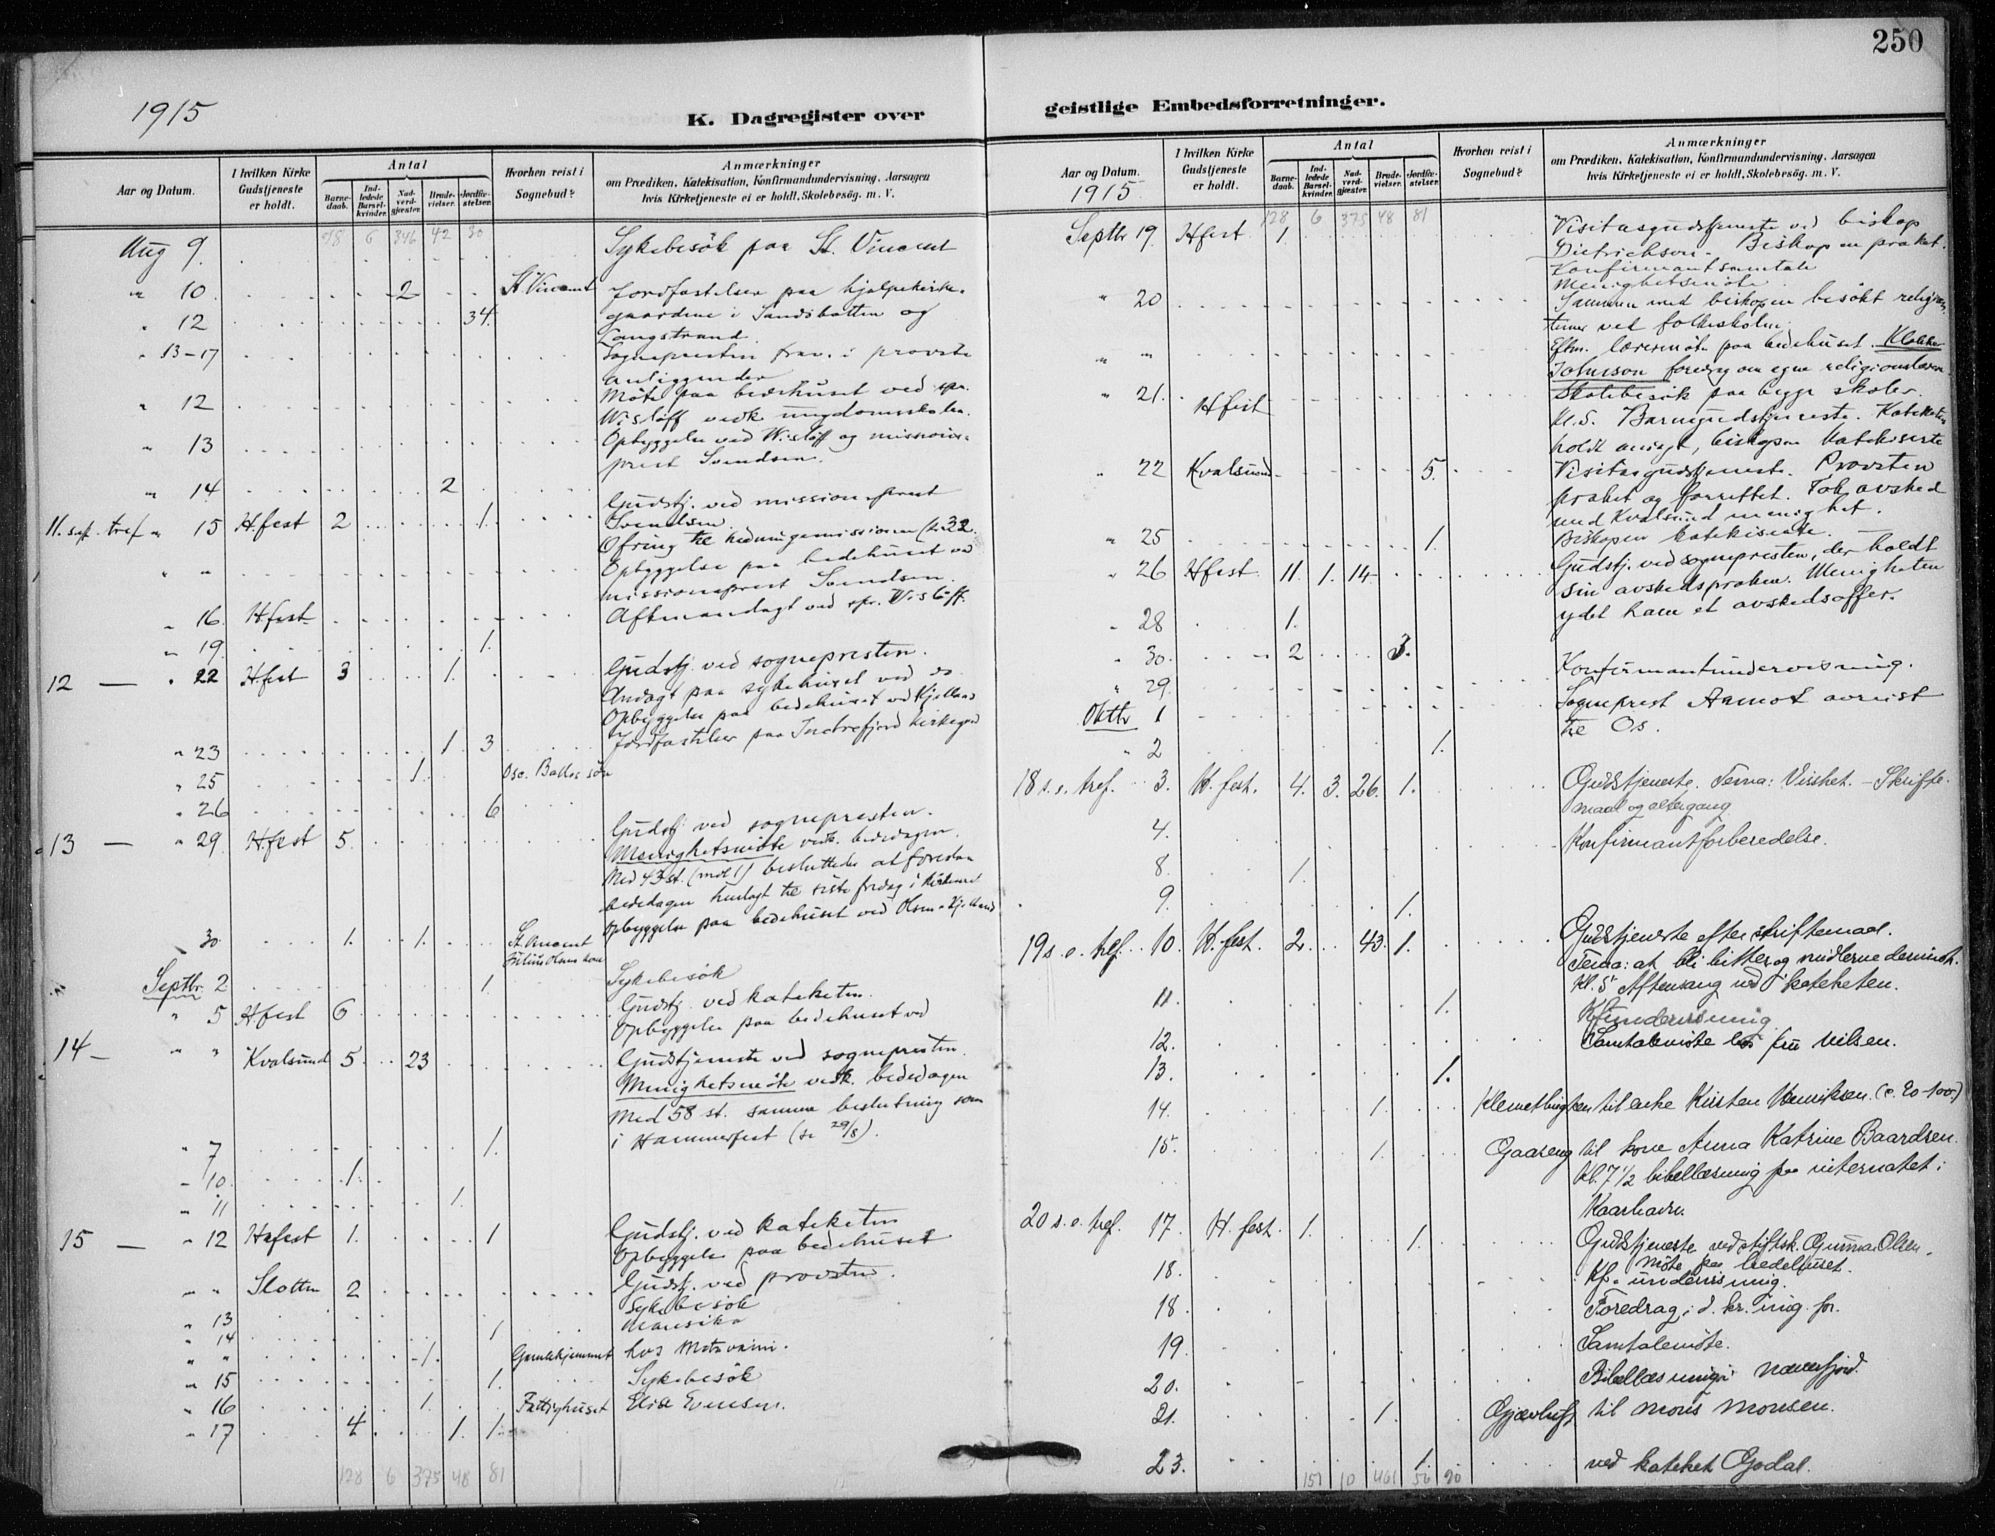 250
1915
K. Dagregister over
geistlige Embedsforretninger.
Aar og Datum.
I hvilken Kirke Gudstjeneste er holdt.
Antal
Barnedaab.
Indledede Barselkvinder.
Nadverdgjæster.
Brudevielser.
Jordfæstelser.
Hvorhen reist i Sognebud?
Anmærkninger
om Prædiken, Katekisation, Konfirmandundervisning, Aarsagen
hvis Kirketjeneste ei er holdt, Skolebesög. m. V.
6 346 42 30
Aug 9. Sykebesök paa St. Vincent
" 10 2 St Vincent Jordfæstelser paa hjelpekirke-
" 12 34. gaardene i Sandsbotten og
Langstrand.
" 13-17 Sognepresten frav. i provste
anliggender
" 12 Möte paa bedehuset ved spr.
Wislöff vedk. ungdomsskolen.
" 13 Opbyggelse ved Wislöff og missions-
prest Svendsen.
" 14 2
Gudstj. ved missionsprest
11. s.ef. tref " 15 H.fest 2 1. Svendsen.
Ofring til hedningemissionen (kr 32.
" " Opbyggelse paa bedehuset ved
missionsprest Svendsen.
" 16. H.fest Aftenandagt ved spr. Wislöff.
" 19. 1.
12 — " 22 H.fest 3 1. Gudstj. ved sognepresten.
Andagt paa sykehuset ved do
Opbyggelse paa bedehuset ved Kjelland
" 23 1 3 Jordfæstelser paa Indrefjord kirkegrd
" 25 1.
" 26 6
13 — " 29 H.fest 5. Gudstj. ved sognepresten.
Menighetsmöte vedk. bededagen.
Med 43 st. (mot 1) besluttedes at foreslaa
bededagen henlagt til siste fredag i kirkeaaret
Opbyggelse paa bedehuset ved Olsen o Kjelland
" 30. 1. 1. St. Vincent
Septbr. 2 1 Sykebesök
" 5 H.fest 6 Gudstj. ved kateketen.
Opbyggelse paa bedehuset ved
14 — " " Kvalsund 5. 23 Gudstjeneste ved sognepresten.
Menighetsmöte vedk. bededagen
Med 58 st. samme beslutning som
i Hammerfest (se 29/8).
" 7 1.
" 10. 1.
" 11 1.
15 — " 12 H.fest 1. 1 Gudstj. ved kateketen
Opbyggelse paa bedehuset
" " Slotten 2 Gudstj. ved provsten.
" 13 Sykebesök
" 14 1
" " 1. Gamlehjemmet hos
" 15 1. Sykebesök
" 16 1. Fattighuset Elise Evensen.
" 17 4. 1. 1.
128 6 375 48 81
Aar og Datum.
1915
I hvilken Kirke Gudstjeneste er holdt.
Antal
Barnedaab.
Indledede Barselkvinder.
Nadverdgjæster.
Brudevielser.
Jordfæstelser.
Hvorhen reist i Sognebud?
Anmærkninger
om Prædiken, Katekisation, Konfirmandundervisning, Aarsagen
hvis Kirketjeneste ei er holdt, Skolebesög. m. V.
128 6 375 48 81
Septbr 19. Hfest 1. Visitasgudstjeneste ved biskop
Dietrichson. Biskopen præket.
Konfirmantsamtale
Menighetsmöte.
" 20 Sammen med biskopen besökt religions-
timer ved folkeskolen.
" " Eftm. lærermöte paa bedehuset. Klokker
Johnsson foredrag om egne religionslæren.
" 21. Hfest Skolebesök paa begge skoler
Kl. 5. Barnegudstjeneste. Kateketen
holdt andagt, biskopen katekiserte
" 22 Kvalsund 5. Visitasgudstjeneste. Provsten
præket og forrettet. Tok avsked
med Kvalsund menighet.
" 25 1. Biskopen katekiserte.
" 26 Hfest 11. 1. 14 Gudstj. ved sognepresten, der holdt
sin avskedspræken. Menigheten
ydet ham et avskedsoffer.
" 28 1.
" 30. 2 3.
" 29. Konfirmantundervisning.
Oktbr 1 Sogneprest Aamot avreist
til Os.
" 2 1.
18 s. e. tref. 3. H. fest. 4. 3. 26. 1. Gudstjeneste. Tema: Visshet. - Skrifte-
maal og altergang
4. Konfirmantforberedelse.
8. 1.
9. 1.
19 s. e. tref. 10. H. fest. 2. 43. 1. Gudstjeneste efter skriftemaal.
Tema: at bli bitter, og midlerne derimot.
Kl. 5 Aftensang ved kateketen.
11. 1. Kf.undervisning
12. Samtalemöte hos fru Nilsen.
13. 1.
14. 1. til enke Kirsten Henriksen.
15. 1. Gaaseng til kone Anna Katrine Baardsen.
Kl. 7 1/2 bibellæsning paa internatet i
Kaarhavn
20 s. e. tref. 17. H. fest. 1. 1. Gudstjeneste ved stiftsk. Gunnar Olsen.
Möte paa bedehuset.
18. Kf. undervisning.
18. Foredrag i d. kr. ung. for.
19. Samtalemöte.
20. Bibellæsning i
21. 1. til Mons Monsen.
23. 1. ved kateket Godal.
151 10 461 56 90